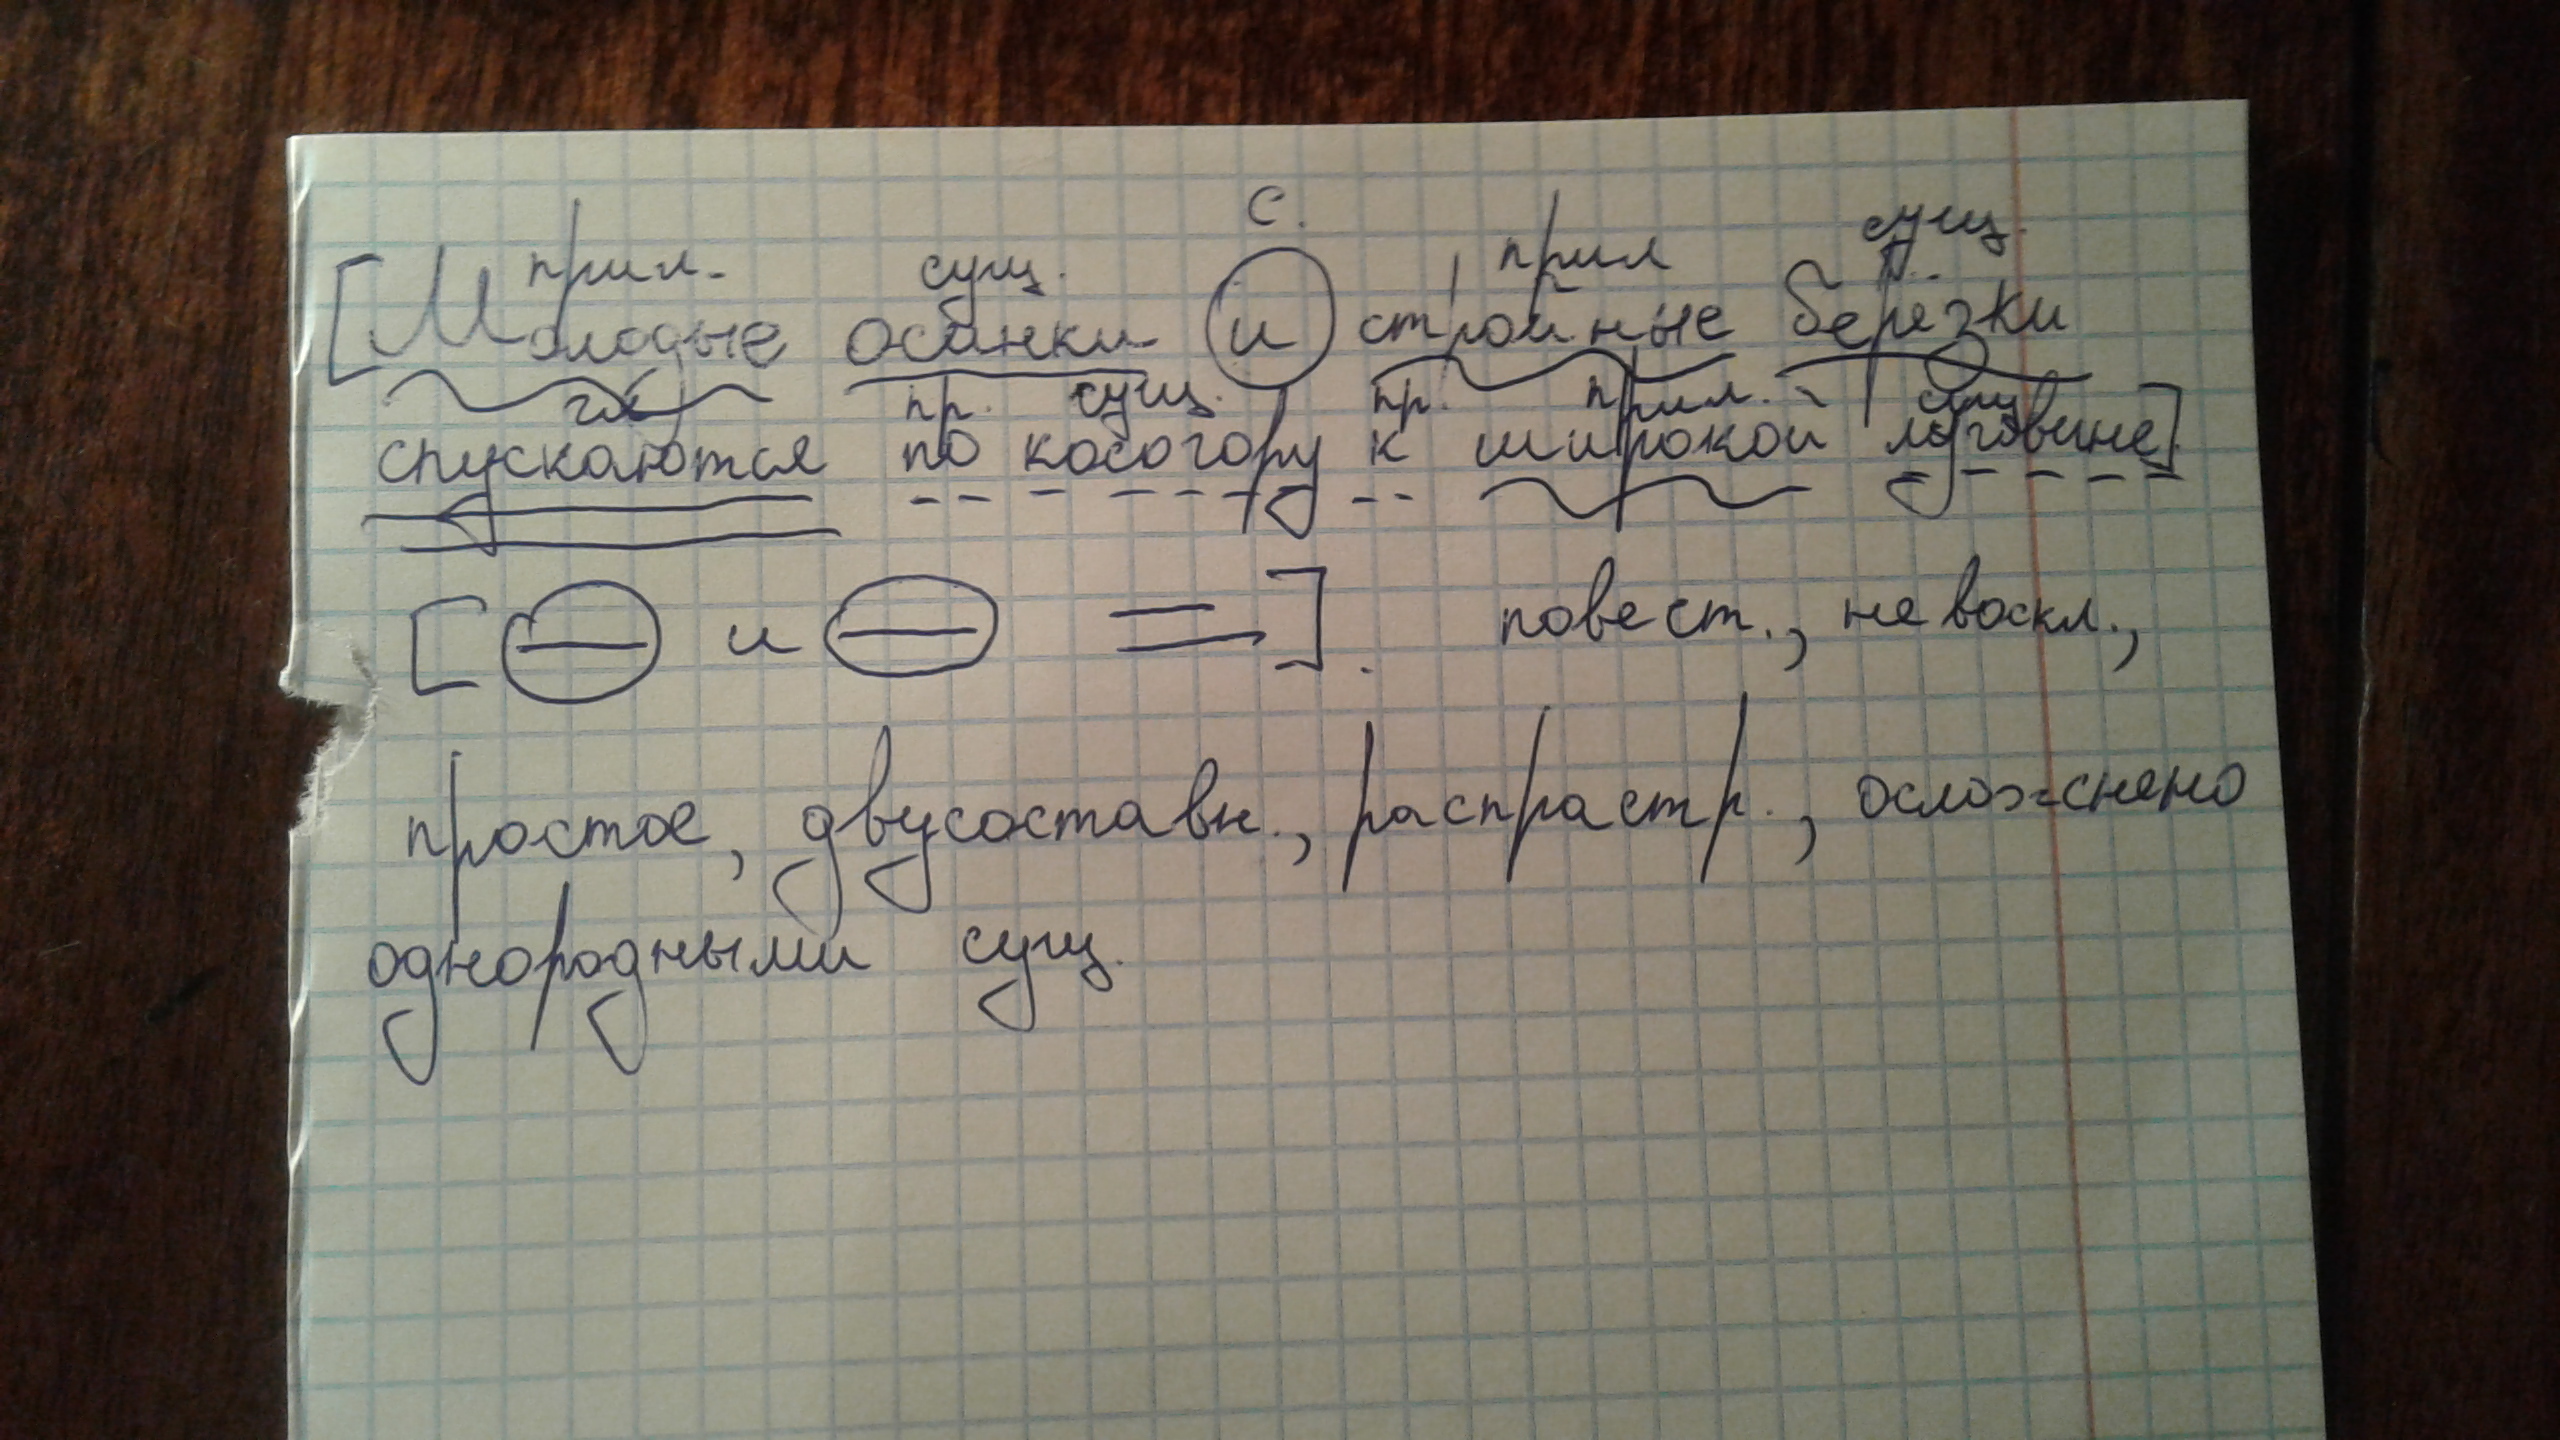 с.
прил. сущ. прил сущ.
[Молодые осинки и стройные берёзки
гл пр. сущ. пр. прил. сущ
спускаются по косогору к широкой луговине].
[— и — =]. повест., не воскл.,
простое, двусоставн., распрастр., осложнено
однородными сущ.